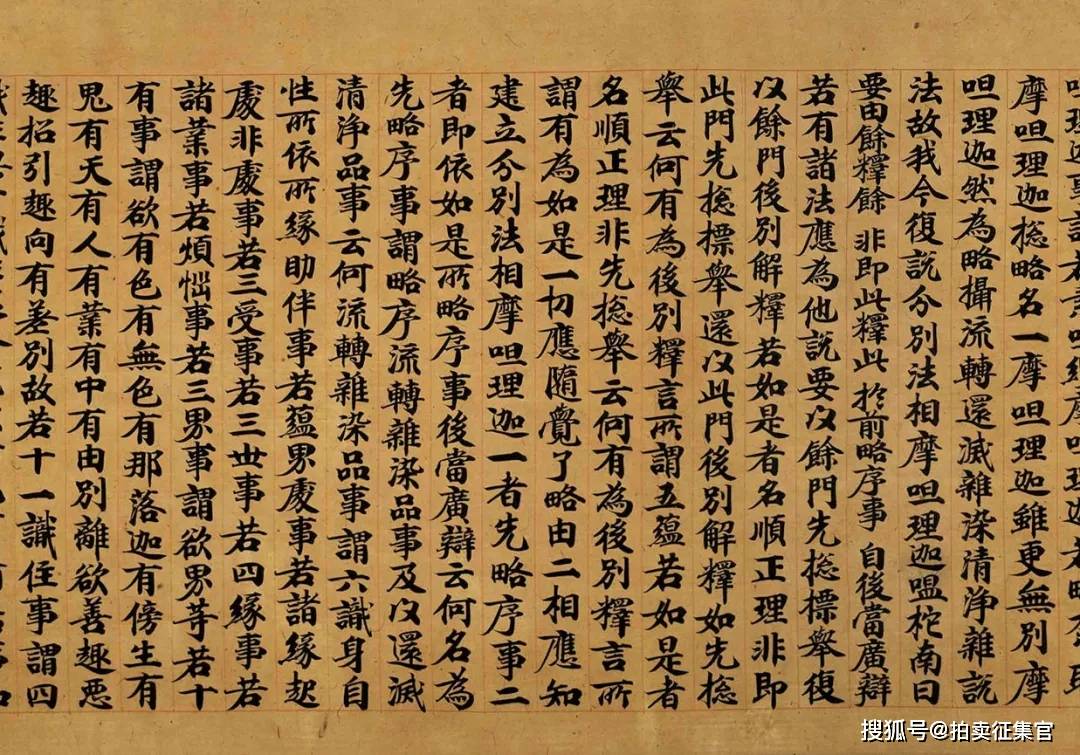 摩呾理迦捴略名一摩呾理迦雖更無別摩
呾理迦然為略攝流轉還滅雜染清淨雜說
法故我今復說分別法相摩呾理迦嗢柁南曰
要由餘釋餘 非即此釋此 於前略序事 自後當廣辯
若有諸法應為他說要以餘門先捴標舉復
以餘門後別解釋若如是者名順正理非即
此門先捴標舉還以此門後別解釋如先捴
舉云何有為後別釋言所謂五蘊若如是者
名順正理非先捴舉云何有為後別釋言所
謂有為如是一切應隨覺了略由二相應知
建立分別法相摩呾理迦一者先略序事二
者即依如是所略序事後當廣辯云何名為
先略序事謂略序流轉雜染品事及以還滅
清淨品事云何流轉雜染品事謂六識身自
性所依所緣助伴事若蘊界處事若諸緣起
處非處事若三受事若三世事若四緣事若
諸業事若煩惱事若三界事謂欲界等若十
有事謂欲有色有無色有那落迦有傍生有
鬼有天有人有業有中有由別離欲善趣惡
趣招引趣向有差別故若十一識住事謂四
搜狐号@拍卖征集官